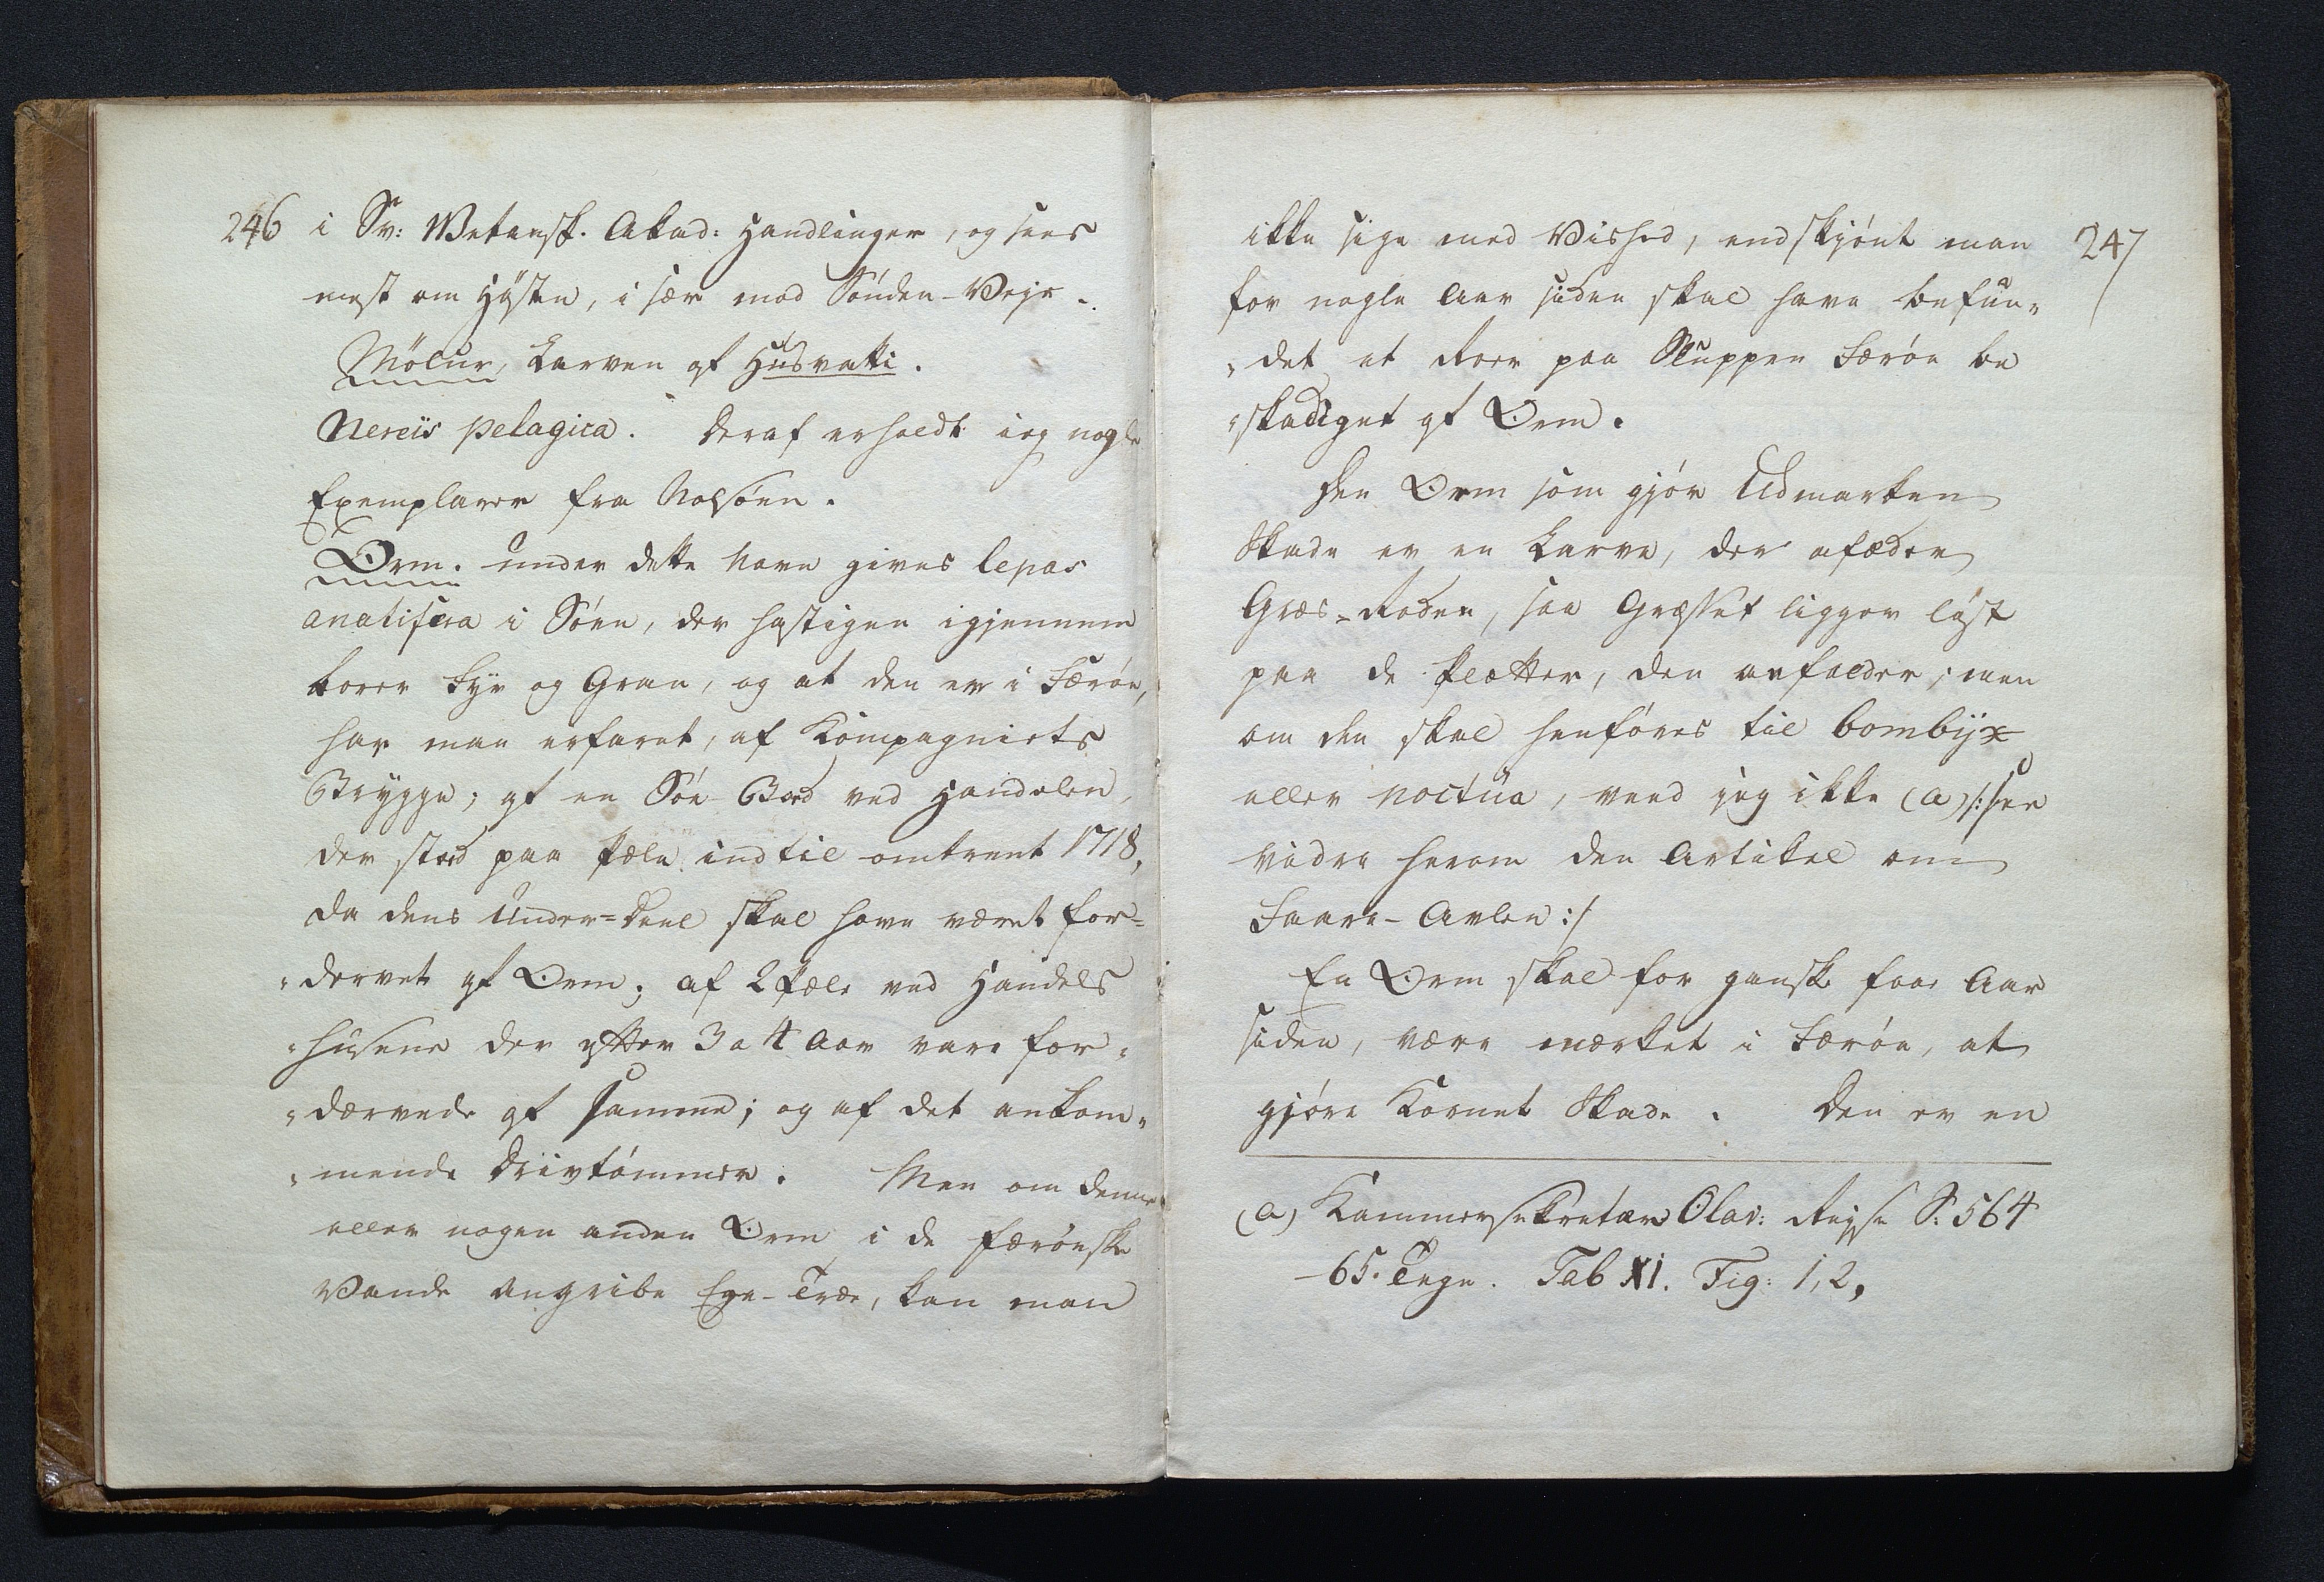 246
i Sv: Wetensk. Akad: Handlinger, og sees
mest om Høsten, i sær mod Sönden-Veje.
Mölur, Larven af Husvatti.
Nereis pelagica. Deraf erholdt ieg nogle
Exemplarer fra Nolsöen.
Orm. under dette Navn gives lepas
anatifera i Söen, der hastigen igjennem
borer Fyr og Gran, og at den er i Færöe,
har man erfaret, af Kompagniets
Brygge; af en Söe-Bod ved Handelen,
der stod paa Pæle indtil omtrent 1718,
da dens Under-Deel skal have været for-
dervet af Orm; af 2 Pæle ved Handels
husene der efter 3 a 4 Aar vare for-
dærvede af samme; og af det ankom-
mende Drivtömmer. Men om denne
eller nogen anden Orm i de færöeske
Vande angribe Ege-Træe, kan man
247
ikke sige med Vished, endskjönt man
for nogle Aar siden skal have befun-
det et Roer paa Sluppen Færöe be
skadiget af Orm.
Den Orm som gjör Udmarken
Skade er en Larve, der afæder
Græs-Roden, saa Græsset ligger löst
paa de Pletter, den anfalder; men
om den skal henföres til bombyx
eller noctua, veed jeg ikke (a) /: see
vidre herom den Artikel om
Faare-Avlen :/
En Orm skal for ganske faae Aar
siden, være mærket i Færöe, at
gjöre Kornet Skade. Den er en
(a) Kammersekretær Olav: Rejse S: 564
-65. Tegn. Tab XI. Fig: 1, 2.